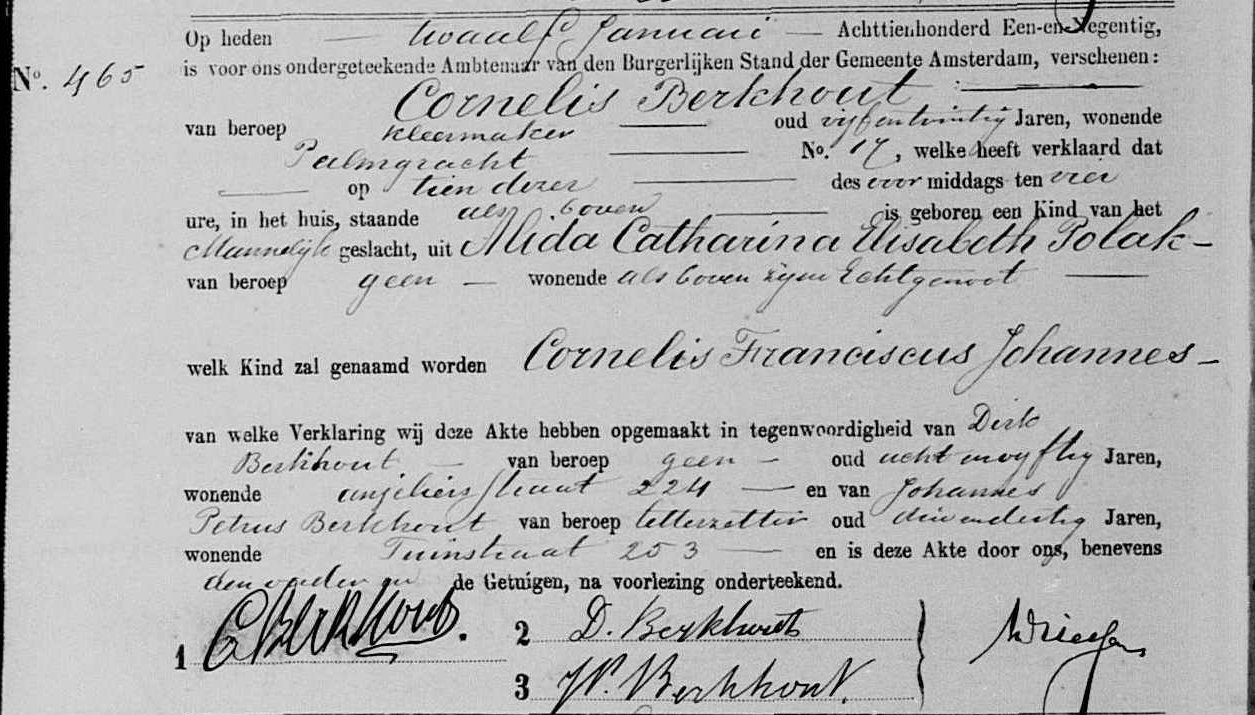 Op heden twaalf Januari Achttienhonderd Een-en-Negentig,
No. 465 is voor ons ondergeteekende Ambtenaar van den Burgerlijken Stand der Gemeente Amsterdam, verschenen:
Cornelis Berkhout
van beroep kleermaker oud vijfentwintig Jaren, wonende
Palmgracht No. 17, welke heeft verklaard dat
op tien dezer des voor middags ten vier
ure, in het huis, staande als boven is geboren een Kind van het
Mannelijk geslacht, uit Alida Catharina Elisabeth Polak
van beroep geen wonende als boven zijne Echtgenoot
welk Kind zal genaamd worden Cornelis Franciscus Johannes
van welke Verklaring wij deze Akte hebben opgemaakt in tegenwoordigheid van Dirk
Berkhout van beroep geen oud acht en vyftig Jaren,
wonende anjeliersstraat 224 en van Johannes
Petrus Berkhout van beroep letterzetter oud drie en dertig Jaren,
wonende Tuinstraat 253 en is deze Akte door ons, benevens
den vader en de Getuigen, na voorlezing onderteekend.
1 C Berkhout. 2 D. Berkhout
3 J.P. Berkhout.